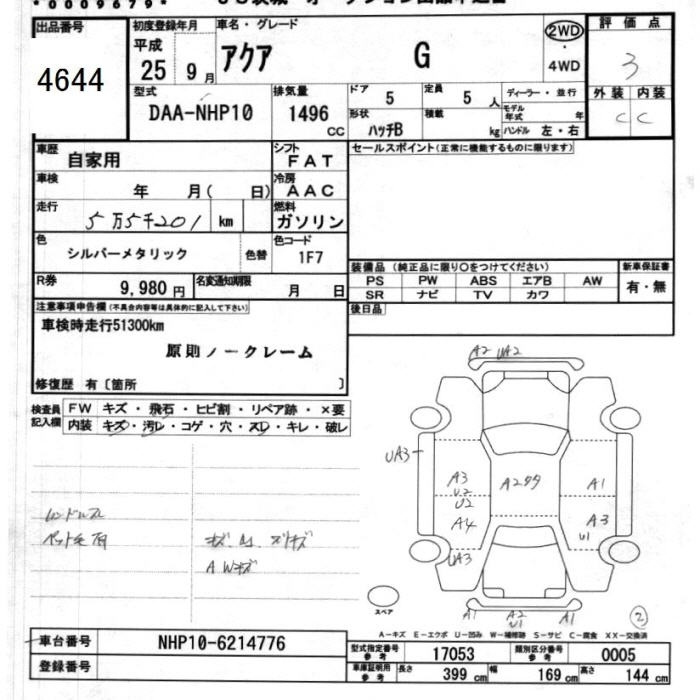 *0009679*
出品番号
4644
初度登録年月
平成
25 9月
車名・グレード
アクア G
2WD
・
4WD
評価点
3
型式
DAA-NHP10
排気量
1496
CC
ドア
5
定員
5 人
形状
ハッチB
積載
kg
ディーラー・並行
モデル
年式 年
ハンドル 左・右
外装 内装
C C
車歴
自家用
シフト
FAT
セールスポイント(正常に機能するものに限ります)
車検
年 月( 日)
冷房
AAC
走行
5万5千201 km
燃料
ガソリン
色
シルバーメタリック
色替
色コード
1F7
R券
9,980 円
名変通知期限
月 日
装備品 (純正品に限り○をつけてください)
新車保証書
PS PW ABS エアB AW
SR ナビ TV カワ
有・無
注意事項申告欄(不具合内容等は具体的に記入して下さい)
車検時走行51300km
原則ノークレーム
後日品
修復歴 有〔箇所 〕
検査員
記入欄
FW キズ・飛石・ヒビ割・リペア跡・×要
内装 キズ・汚レ・コゲ・穴・スレ・キレ・破レ
A2 UA2
UA3
A3
U2
U2
A4
UA3
A1
A3
U1
ハンドルスレ
ペット毛有
A Wキズ
スペア
A1 A2 U1 A1
2
A-キズ E-エクボ U-凹み W-補修跡 S-サビ C-腐食 XX-交換済
車台番号
NHP10-6214776
登録番号
型式指定番号
参考
17053
類別区分番号
参考
0005
車庫証明用
参考
長さ
399 cm
幅
169 cm
高さ
144 cm